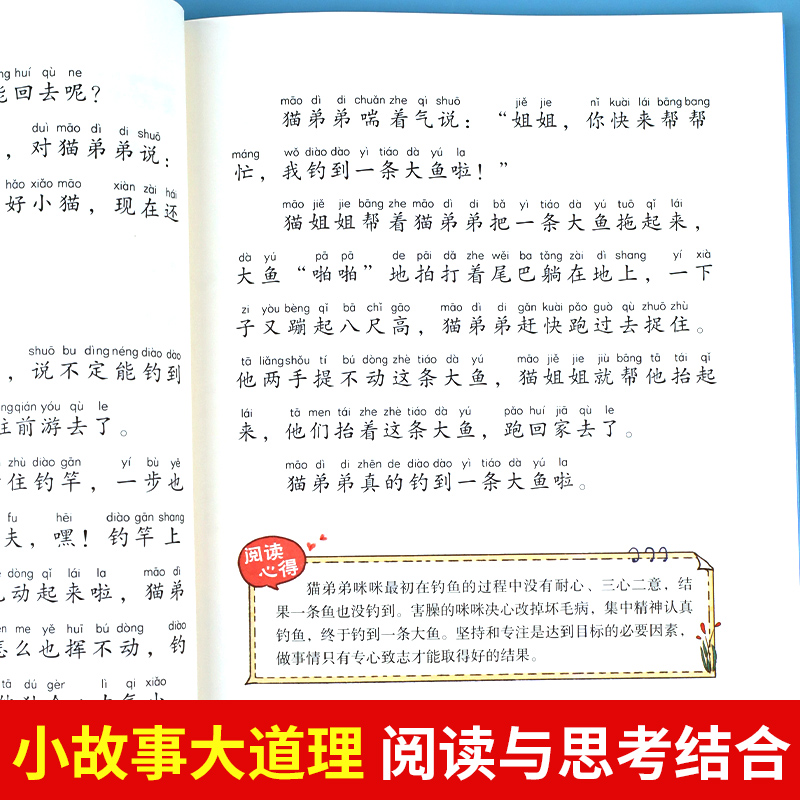 ng huí qù ne
能回去呢？
duì māo dì di shuō
，对猫弟弟说：
hǎo xiǎo māo xiàn zài hái
好小猫，现在还
shuō bu dìng néng diào dào
，说不定能钓到
ng qián yóu qù le
往前游去了。
zhù diào gān yí bù yě
住钓竿，一步也
fu hēi diào gān shang
夫，嘿！钓竿上
dòng qǐ lái la māo dì
动起来啦，猫弟
me yě huī bú dòng diào
怎么也挥不动，钓
dú gèr lì qì xiǎo
māo dì di chuǎn zhe qì shuō jiě jie nǐ kuài lái bāng bang
猫弟弟喘着气说：“姐姐，你快来帮帮
máng wǒ diào dào yì tiáo dà yú la
忙，我钓到一条大鱼啦！”
māo jiě jie bāng zhe māo dì di bǎ yì tiáo dà yú tuō qǐ lái
猫姐姐帮着猫弟弟把一条大鱼拖起来，
dà yú pā pā de pāi dǎ zhe wěi ba tǎng zài dì shang yí xià
大鱼“啪啪”地拍打着尾巴躺在地上，一下
zi yòu bèng qǐ bā chǐ gāo māo dì di gǎn kuài pǎo guò qù zhuō zhù
子又蹦起八尺高，猫弟弟赶快跑过去捉住。
tā liǎng shǒu tí bú dòng zhè tiáo dà yú māo jiě jie jiù bāng tā tái qǐ
他两手提不动这条大鱼，猫姐姐就帮他抬起
lái tā men tái zhe zhè tiáo dà yú pǎo huí jiā qù le
来，他们抬着这条大鱼，跑回家去了。
māo dì di zhēn de diào dào yì tiáo dà yú la
猫弟弟真的钓到一条大鱼啦。
阅读
心得
猫弟弟咪咪最初在钓鱼的过程中没有耐心、三心二意，结
果一条鱼也没钓到。害臊的咪咪决心改掉坏毛病，集中精神认真
钓鱼，终于钓到一条大鱼。坚持和专注是达到目标的必要因素，
做事情只有专心致志才能取得好的结果。
小故事大道理 阅读与思考结合